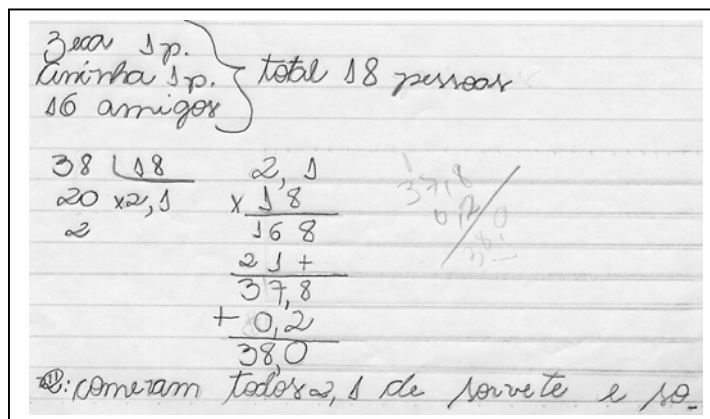 Zeca 1p.
Aninha 1p. } total 18 pessoas
16 amigos
38 | 18
20 x2,1
2
2,1
x 18
168
21+
37,8
+ 0,2
38,0
37,8
0,2
38,0
R: comeram todos 2,1 de sorvete e so_